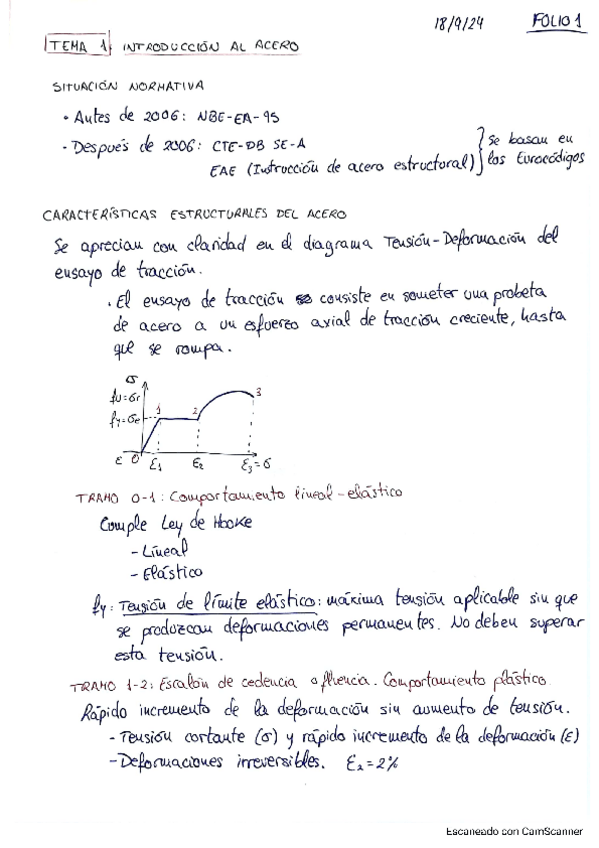 18/9/24 FOLIO 1
TEMA 1 INTRODUCCIÓN AL ACERO
SITUACIÓN NORMATIVA
· Antes de 2006: NBE-EA-95
· Después de 2006: CTE-DB SE-A
EAE (Instrucción de acero estructural)
Se basan en
los Eurocódigos
CARACTERÍSTICAS ESTRUCTURALES DEL ACERO
Se aprecian con claridad en el diagrama Tensión-Deformación del
ensayo de tracción.
· El ensayo de tracción consiste en someter una probeta
de acero a un esfuerzo axial de tracción creciente, hasta
que se rompa.
σ
fu=σr
fy=σe
1
2
3
ε 0 ε1 ε2 ε3=σ
TRAMO 0-1: Comportamiento lineal-elástico
Cumple Ley de Hooke
- Lineal
- Elástico
fy: Tensión de límite elástico: máxima tensión aplicable sin que
se produzcan deformaciones permanentes. No deben superar
esta tensión.
TRAMO 1-2: Escalón de cedencia o fluencia. Comportamiento plástico
Rápido incremento de la deformación sin aumento de tensión.
- Tensión cortante (σ) y rápido incremento de la deformación (ε)
- Deformaciones irreversibles. ε2=2%
Escaneado con CamScanner